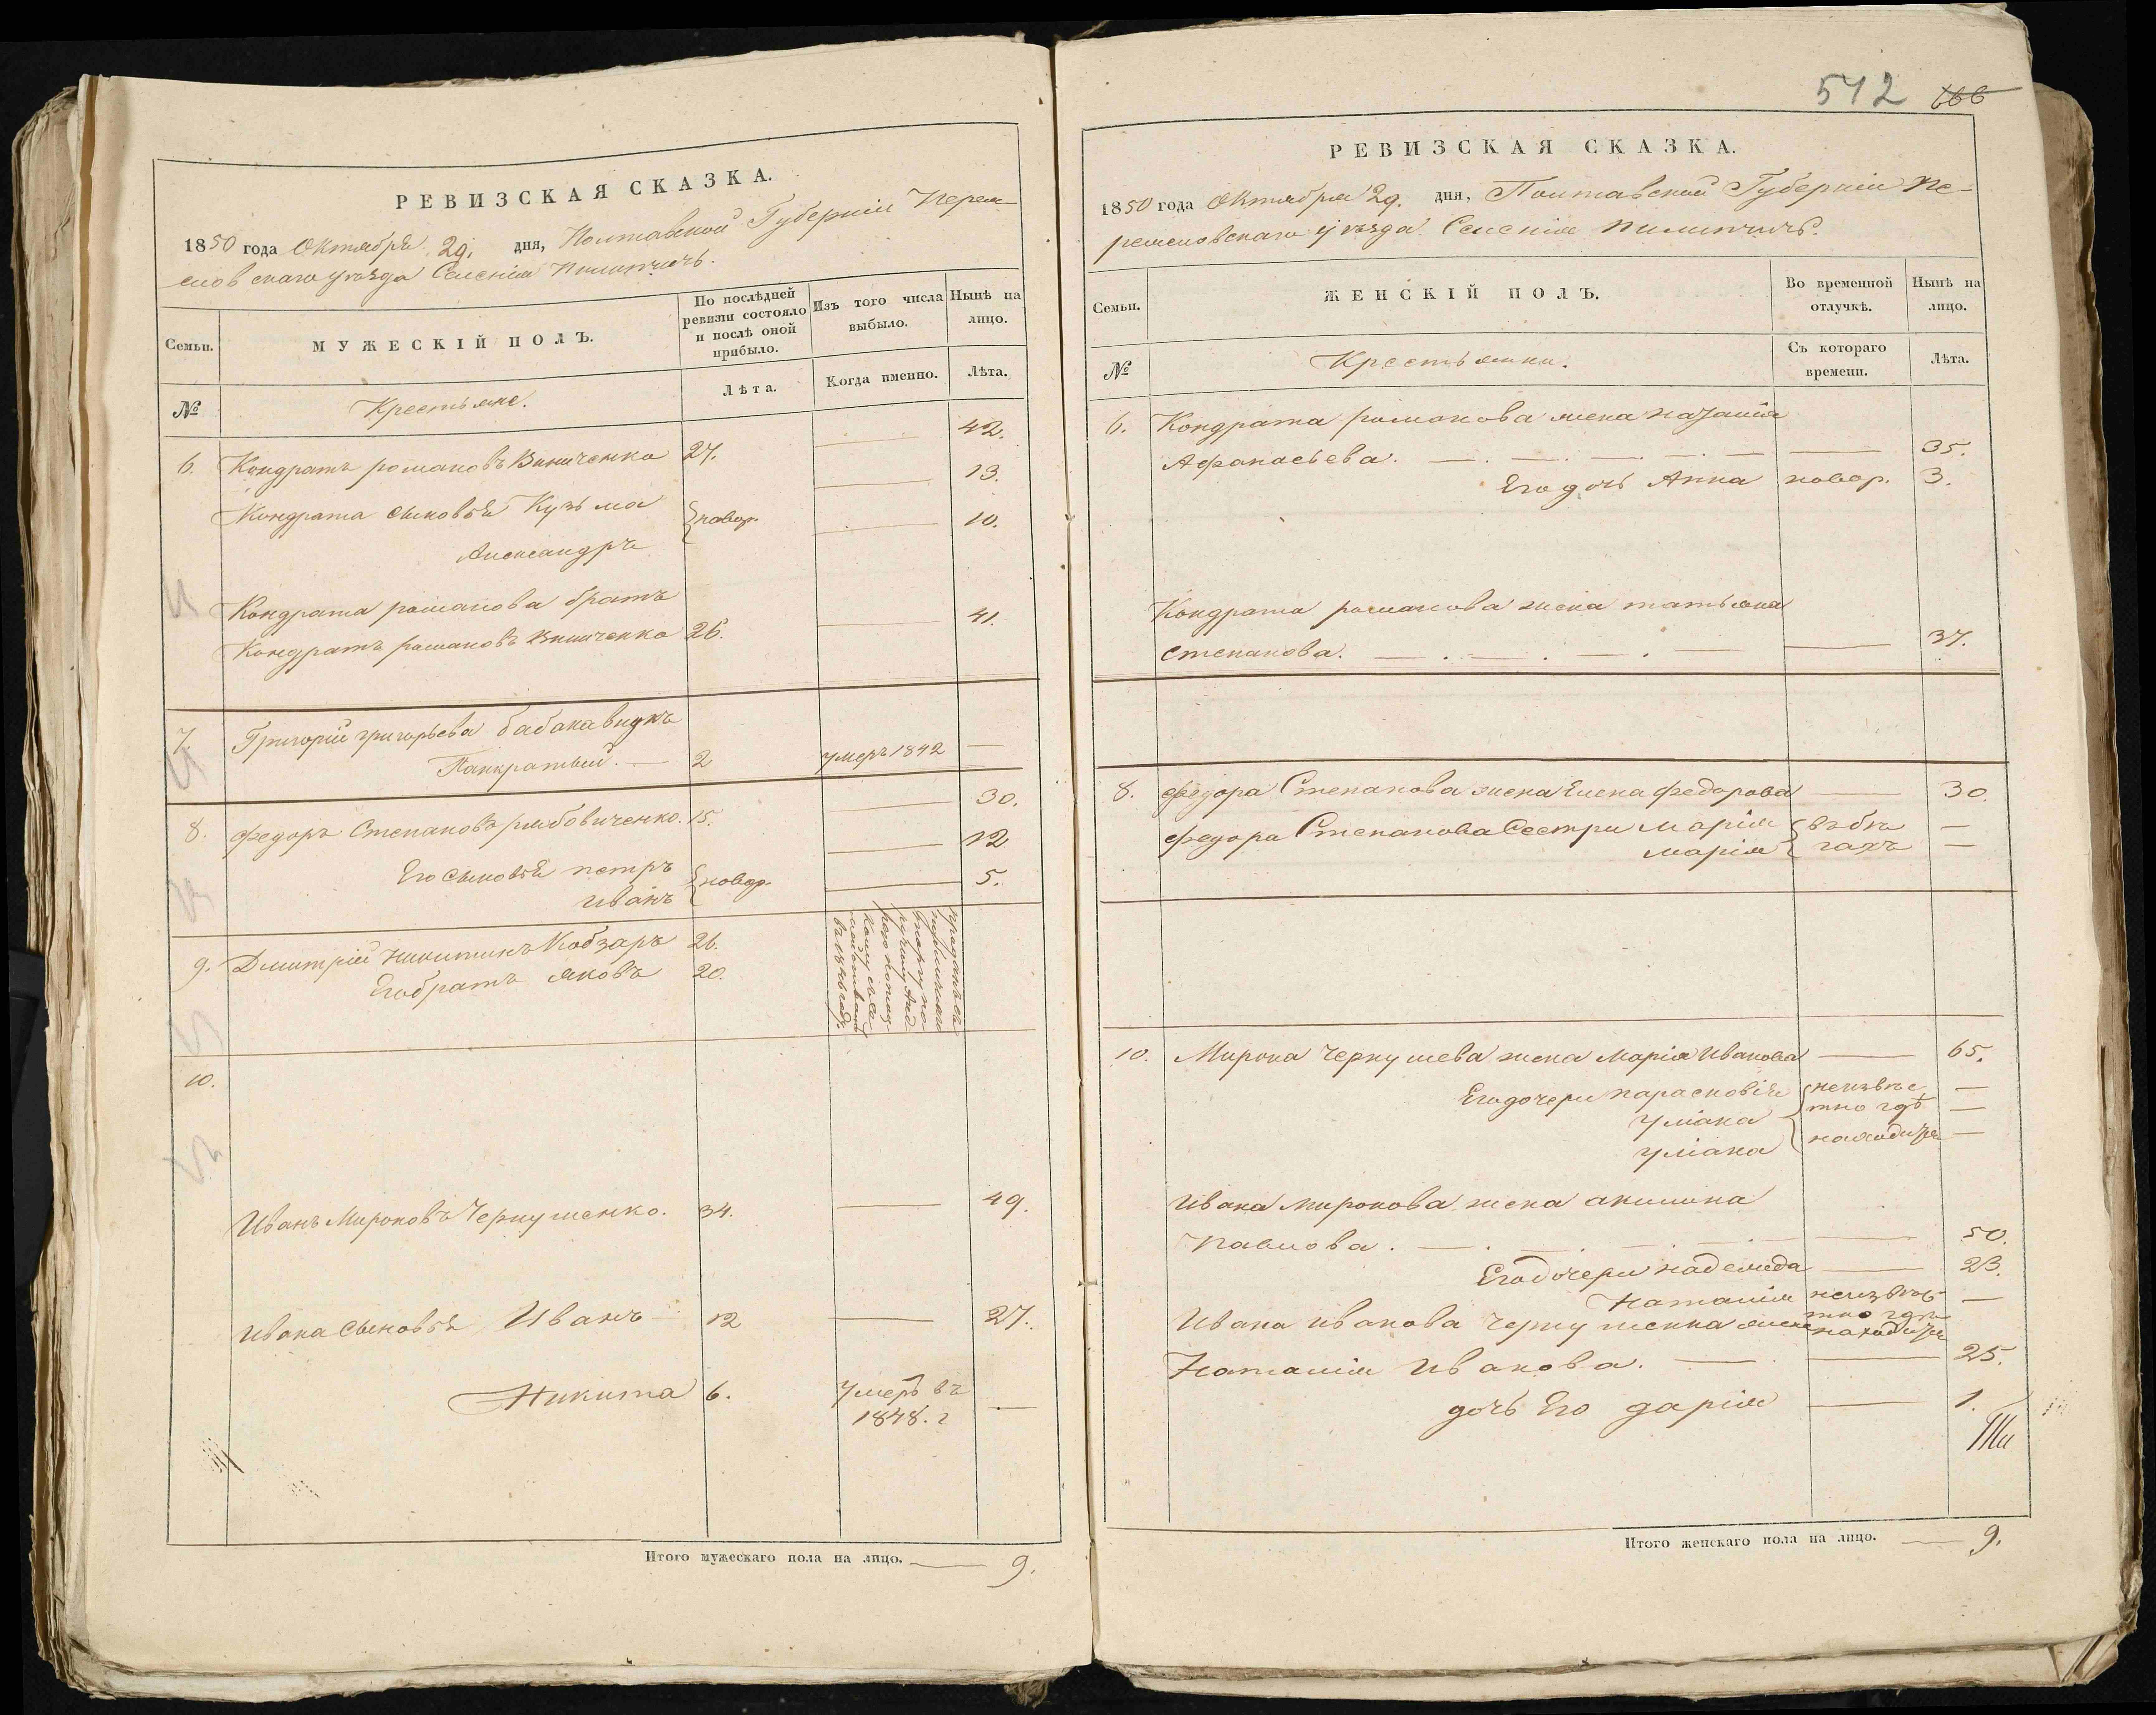 РЕВИЗСКАЯ СКАЗКА.
1850 года Октября 29. дня, Полтавской Губерніи Перея-
словскаго уѣзда Селенія Пилипчичъ.
Семьи.
МУЖЕСКІЙ ПОЛЪ.
По послѣдней ревизіи состояло и послѣ оной прибыло.
Изъ того числа выбыло.
Нынѣ на лицо.
№
Крестьяне.
Лѣта.
Когда именно.
Лѣта.
6. Кондратъ романовъ Виниченко 27. — 42.
Кондрата сыновья Кузьма — 13.
новор.
Александръ — 10.
Кондрата романова братъ
Кондратъ романовъ Винниченко 26. — 41.
7. Григорій григорьева бабака внукъ
Панкратый. — 2 умеръ 1842 —
8. федоръ Степановъ рибовиченко. 15. — 30.
Его сыновья петръ — 12
новор.
иванъ — 5.
9. Дмитрій никитинъ Кобзарь 26.
Его братъ яковъ 20.
10.
Иванъ Мироновъ Чернушенко. 34. — 49.
ивана сыновья Иванъ 12 — 27.
Никита 6. Умеръ въ
1848. г —
Итого мужескаго пола на лицо. — 9.
512 666
РЕВИЗСКАЯ СКАЗКА.
1850 года Октября 29. дня, Полтавской Губерніи Пе-
реяславскаго уѣзда Селенія Пилипчичъ.
Семьи.
ЖЕНСКІЙ ПОЛЪ.
Во временной отлучкѣ.
Нынѣ на лицо.
№
Крестьянки.
Съ котораго времени.
Лѣта.
6. Кондрата романова жена
Афанасьева. — 35.
Его дочь Анна новор. 3.
Кондрата романова жена татьяна
степанова. — 37.
8. федора Степанова жена Елена федорова — 30.
федора Степанова Сестри Марія въ бѣ —
марія гахъ —
10. Мирона Чернушева жена Марія Иванова — 65.
Его дочери парасковія неизвѣс —
уліана тно гдѣ —
уліана находится —
ивана миронова жена акилина
павлова. — 50.
Его дочери надежда — 23.
Наталія неизвѣс —
Ивана иванова чернушенка жена тно гдѣ
находится
Наталія Иванова. — 25.
дочь Его дарія — 1.
Итого женскаго пола на лицо. — 9.